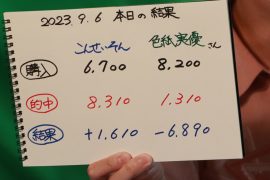 2023.9.6 本日の結果
こんせいそん 色紙実優さん
購入 6.700 8.200
的中 8.310 1.310
結果 +1.610 -6.890